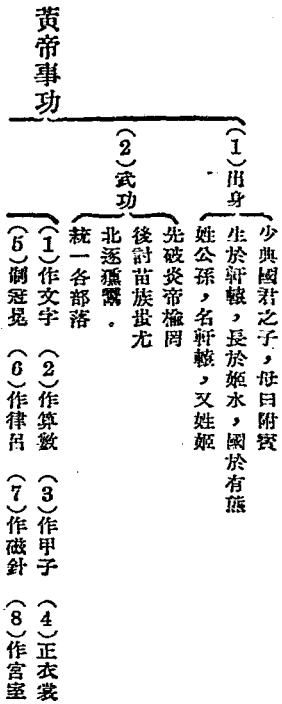 黃帝事功
（1）出身
少典國君之子，母曰附寳
生於軒轅，長於姬水，國於有熊
姓公孫，名軒轅，又姓姬
（2）武功
先破炎帝榆罔
後討苗族蚩尤
北逐獯鬻．
統一各部落
（1）作文字　（2）作算數　（3）作甲子　（4）正衣裳
（5）制冠冕　（6）作律呂　（7）作磁針　（8）作宮室